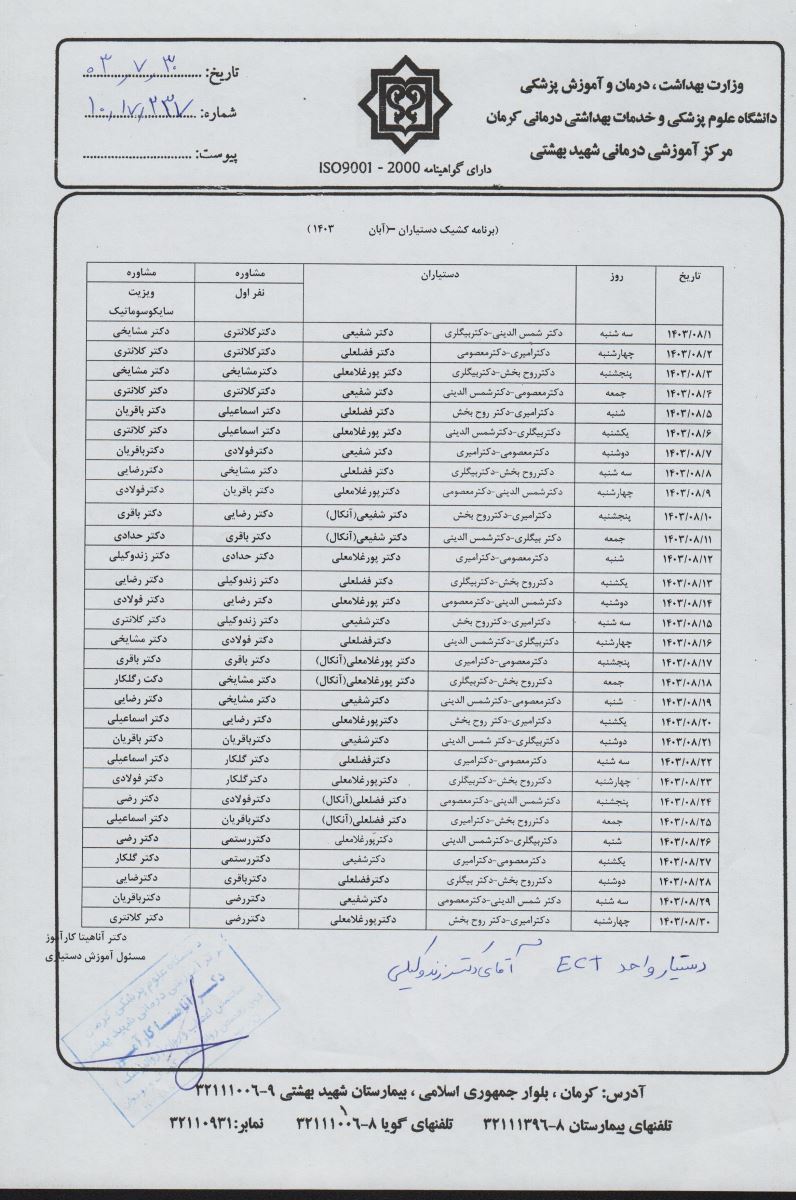 وزارت بهداشت ، درمان و آموزش پزشکی
دانشگاه علوم پزشکی و خدمات بهداشتی درمانی کرمان
مرکز آموزشی درمانی شهید بهشتی
دارای گواهینامه ISO9001 - 2000
تاریخ: ۰۳,۷,۳۰
شماره: ۱۰,۱۷/۲۳۷
پیوست:
(برنامه کشیک دستیاران -(آبان ۱۴۰۳)
تاریخ روز دستیاران مشاوره نفر اول مشاوره ویزیت سایکوسوماتیک
۱۴۰۳/۰۸/۱ سه شنبه دکتر شمس الدینی-دکتربیگلری دکتر شفیعی دکترکلانتری دکتر مشایخی
۱۴۰۳/۰۸/۲ چهارشنبه دکترامیری-دکترمعصومی دکتر فضلعلی دکترکلانتری دکتر کلانتری
۱۴۰۳/۰۸/۳ پنجشنبه دکترروح بخش-دکتربیگلری دکتر پورغلامعلی دکترمشایخی دکتر مشایخی
۱۴۰۳/۰۸/۴ جمعه دکترمعصومی-دکترشمس الدینی دکتر شفیعی دکترکلانتری دکتر کلانتری
۱۴۰۳/۰۸/۵ شنبه دکترامیری-دکتر روح بخش دکتر فضلعلی دکتر اسماعیلی دکتر باقریان
۱۴۰۳/۰۸/۶ یکشنبه دکتربیگلری-دکترشمس الدینی دکتر پورغلامعلی دکتر اسماعیلی دکتر کلانتری
۱۴۰۳/۰۸/۷ دوشنبه دکترمعصومی-دکترامیری دکتر شفیعی دکترفولادی دکترباقریان
۱۴۰۳/۰۸/۸ سه شنبه دکترروح بخش-دکتربیگلری دکتر فضلعلی دکتر مشایخی دکتررضایی
۱۴۰۳/۰۸/۹ چهارشنبه دکترشمس الدینی-دکترمعصومی دکترپورغلامعلی دکتر باقریان دکترفولادی
۱۴۰۳/۰۸/۱۰ پنجشنبه دکترامیری-دکترروح بخش دکتر شفیعی(آنکال) دکتر رضایی دکتر باقری
۱۴۰۳/۰۸/۱۱ جمعه دکتر بیگلری-دکترشمس الدینی دکتر شفیعی(آنکال) دکتر باقری دکتر حدادی
۱۴۰۳/۰۸/۱۲ شنبه دکترمعصومی-دکترامیری دکتر پورغلامعلی دکتر حدادی دکتر زندوکیلی
۱۴۰۳/۰۸/۱۳ یکشنبه دکترروح بخش-دکتربیگلری دکتر فضلعلی دکتر زندوکیلی دکتر رضایی
۱۴۰۳/۰۸/۱۴ دوشنبه دکترشمس الدینی-دکترمعصومی دکتر پورغلامعلی دکتر رضایی دکتر فولادی
۱۴۰۳/۰۸/۱۵ سه شنبه دکترامیری-دکترروح بخش دکترشفیعی دکتر زندوکیلی دکتر کلانتری
۱۴۰۳/۰۸/۱۶ چهارشنبه دکتربیگلری-دکترشمس الدینی دکترفضلعلی دکتر فولادی دکتر مشایخی
۱۴۰۳/۰۸/۱۷ پنجشنبه دکترمعصومی-دکترامیری دکتر پورغلامعلی(آنکال) دکتر باقری دکتر باقری
۱۴۰۳/۰۸/۱۸ جمعه دکترروح بخش-دکتربیگلری دکتر پورغلامعلی(آنکال) دکتر مشایخی دکت رگلکار
۱۴۰۳/۰۸/۱۹ شنبه دکترمعصومی-دکترشمس الدینی دکترشفیعی دکتر مشایخی دکتر رضایی
۱۴۰۳/۰۸/۲۰ یکشنبه دکترامیری-دکتر روح بخش دکترپورغلامعلی دکتر رضایی دکتر اسماعیلی
۱۴۰۳/۰۸/۲۱ دوشنبه دکتربیگلری-دکتر شمس الدینی دکترشفیعی دکترباقریان دکتر باقریان
۱۴۰۳/۰۸/۲۲ سه شنبه دکترمعصومی-دکترامیری دکترفضلعلی دکتر گلکار دکتر اسماعیلی
۱۴۰۳/۰۸/۲۳ چهارشنبه دکترروح بخش-دکتربیگلری دکترپورغلامعلی دکترگلکار دکتر فولادی
۱۴۰۳/۰۸/۲۴ پنجشنبه دکترشمس الدینی-دکترمعصومی دکتر فضلعلی(آنکال) دکترفولادی دکتر رضی
۱۴۰۳/۰۸/۲۵ جمعه دکترروح بخش-دکترامیری دکتر فضلعلی(آنکال) دکترباقریان دکتر اسماعیلی
۱۴۰۳/۰۸/۲۶ شنبه دکتربیگلری-دکترشمس الدینی دکترپورغلامعلی دکتررستمی دکتر رضی
۱۴۰۳/۰۸/۲۷ یکشنبه دکترمعصومی-دکترامیری دکترشفیعی دکتررستمی دکتر گلکار
۱۴۰۳/۰۸/۲۸ دوشنبه دکترروح بخش-دکتر بیگلری دکترفضلعلی دکترباقری دکتررضایی
۱۴۰۳/۰۸/۲۹ سه شنبه دکتر شمس الدینی-دکترمعصومی دکترشفیعی دکتررضی دکترباقریان
۱۴۰۳/۰۸/۳۰ چهارشنبه دکترامیری-دکتر روح بخش دکترپورغلامعلی دکتررضی دکتر کلانتری
دکتر آناهیتا کارآموز
مسئول آموزش دستیاری
دستیار واحد ECT آقای دکتر زندوکیلی
آدرس: کرمان ، بلوار جمهوری اسلامی ، بیمارستان شهید بهشتی ۹-۳۲۱۱۱۰۰۶
تلفنهای بیمارستان ۸-۳۲۱۱۱۳۹۶ تلفنهای گویا ۸-۳۲۱۱۱۰۰۶ نمابر:۳۲۱۱۰۹۳۱